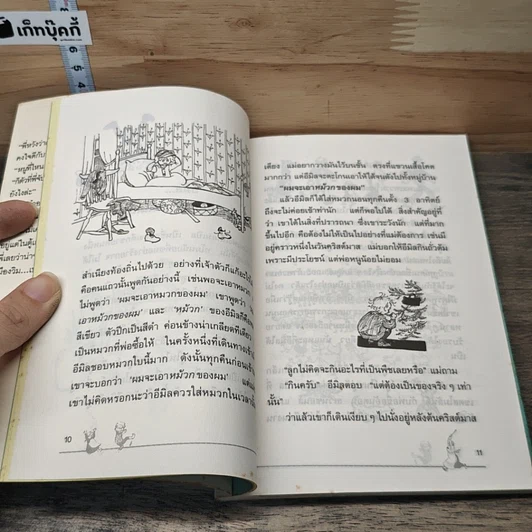 เก็ทบุ๊คกี้
6
5
4
"พี่หวังว่า
คงใจดีกับ
"หนูที่ไหน
ยังไงล่ะ"
สำเนียงท้องถิ่นไปด้วย อย่างที่เจ้าตัวก็แก้อะไร
คือคนแถวนั้นพูดกันอย่างนี้ เช่นพอจะเอาหมวก
ไม่พูดว่า 'ผมจะเอาหมวกของผม' เขาพูดว่า
เอาหมวกของผม' และ 'หมัวก' ของอีมิลก็คือ
สีเขียว ตัวปีกเป็นสีดำ ค่อนข้างน่าเกลียดทีเดียว
เป็นหมวกที่พ่อซื้อให้ ในครั้งหนึ่งที่เดินทางเข้า
อีมิลชอบหมวกใบนี้มาก ดังนั้นทุกคืนก่อนเข้า
เขาจะบอกว่า 'ผมจะเอาหมัวกของผม' แต่
เขาไม่คิดหรอกนะว่าอีมิลควรใส่หมวกในเวลา
10
เตียง แม่อยากวางมันไว้บนชั้น ตรงที่แขวนเสื้อโคต
มากกว่า แต่อีมิลจะตะโกนเอาให้ได้จนดังไปทั้งหมู่บ้าน
"ผมจะเอาหมัวกของผม"
แล้วอีมิลก็ได้ใส่หมวกนอนทุกคืนตั้ง 3 อาทิตย์
ถึงจะไม่ค่อยเข้าท่านัก แต่ก็พอไปได้ สิ่งสำคัญอยู่ที่
ว่า เขาได้ในสิ่งที่ปรารถนา ซึ่งเขาระวังนัก แต่ที่มาก
ขึ้นไปอีก คือต้องไม่ให้เป็นไปอย่างที่แม่ต้องการ เช่นมี
อยู่คราวหนึ่งในวันคริสต์มาส แม่บอกให้อีมิลกินถั่วต้ม
เพราะมีประโยชน์ แต่พ่อหนูน้อยไม่ยอม
"ลูกไม่คิดจะกินอะไรที่เป็นพืชเลยหรือ" แม่ถาม
"กินครับ" อีมิลตอบ "แต่ต้องเป็นของจริง ๆ เท่า
นั้น"
ว่าแล้วเขาก็เดินเงียบ ๆ ไปนั่งอยู่หลังต้นคริสต์มาส
11